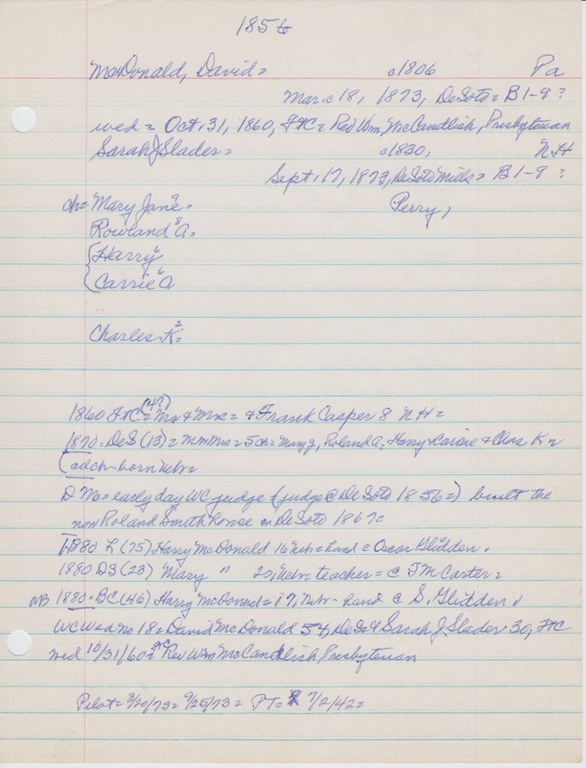 1856
McDonald, David = c1806 Pa
Mar. c 18, 1873, DeSoto = B1-9 ?
wed = Oct. 31, 1860, FtC = Rev Wm McCandlish, Presbyterian
Sarah J Slader = c1830, NH
Sept. 17, 1873, DeSoto Mills = B1-9 ?
ch = Mary Jane 9 = Perry,
Rowland 8 A =
Harry 6
Carrie 6 A
Charles K 2 =
1860 FtC (47) = Mr & Mrs = & Frank Casper 8 NH =
1870 = DeS (13) = Mr Mrs = 5 ch = Mary J, Roland A, Harry & Carrie & Chas K =
all ch born Nebr =
D Mc = early day WC judge (judge @ DeSoto 1856 =) built the
now Roland Smith house in DeSoto 1867 =
1880 L (75) Harry McDonald 16 Nebr = hand c Oscar Glidden.
1880 DS (23) Mary " 20, Nebr = teacher = c TM Carter =
NB 1880 = BC (46) Harry McDonald = 17, Nebr - hand c S. Glidden
WC Wed no 18 = David McDonald 54, DeSo & Sarah J Slader 30, FtC
wed 10/31/60 = FtC Rev Wm McCandlish, Presbyterian
Pilot = 3/20/73 = 9/25/73 = PT = 7/2/42 =